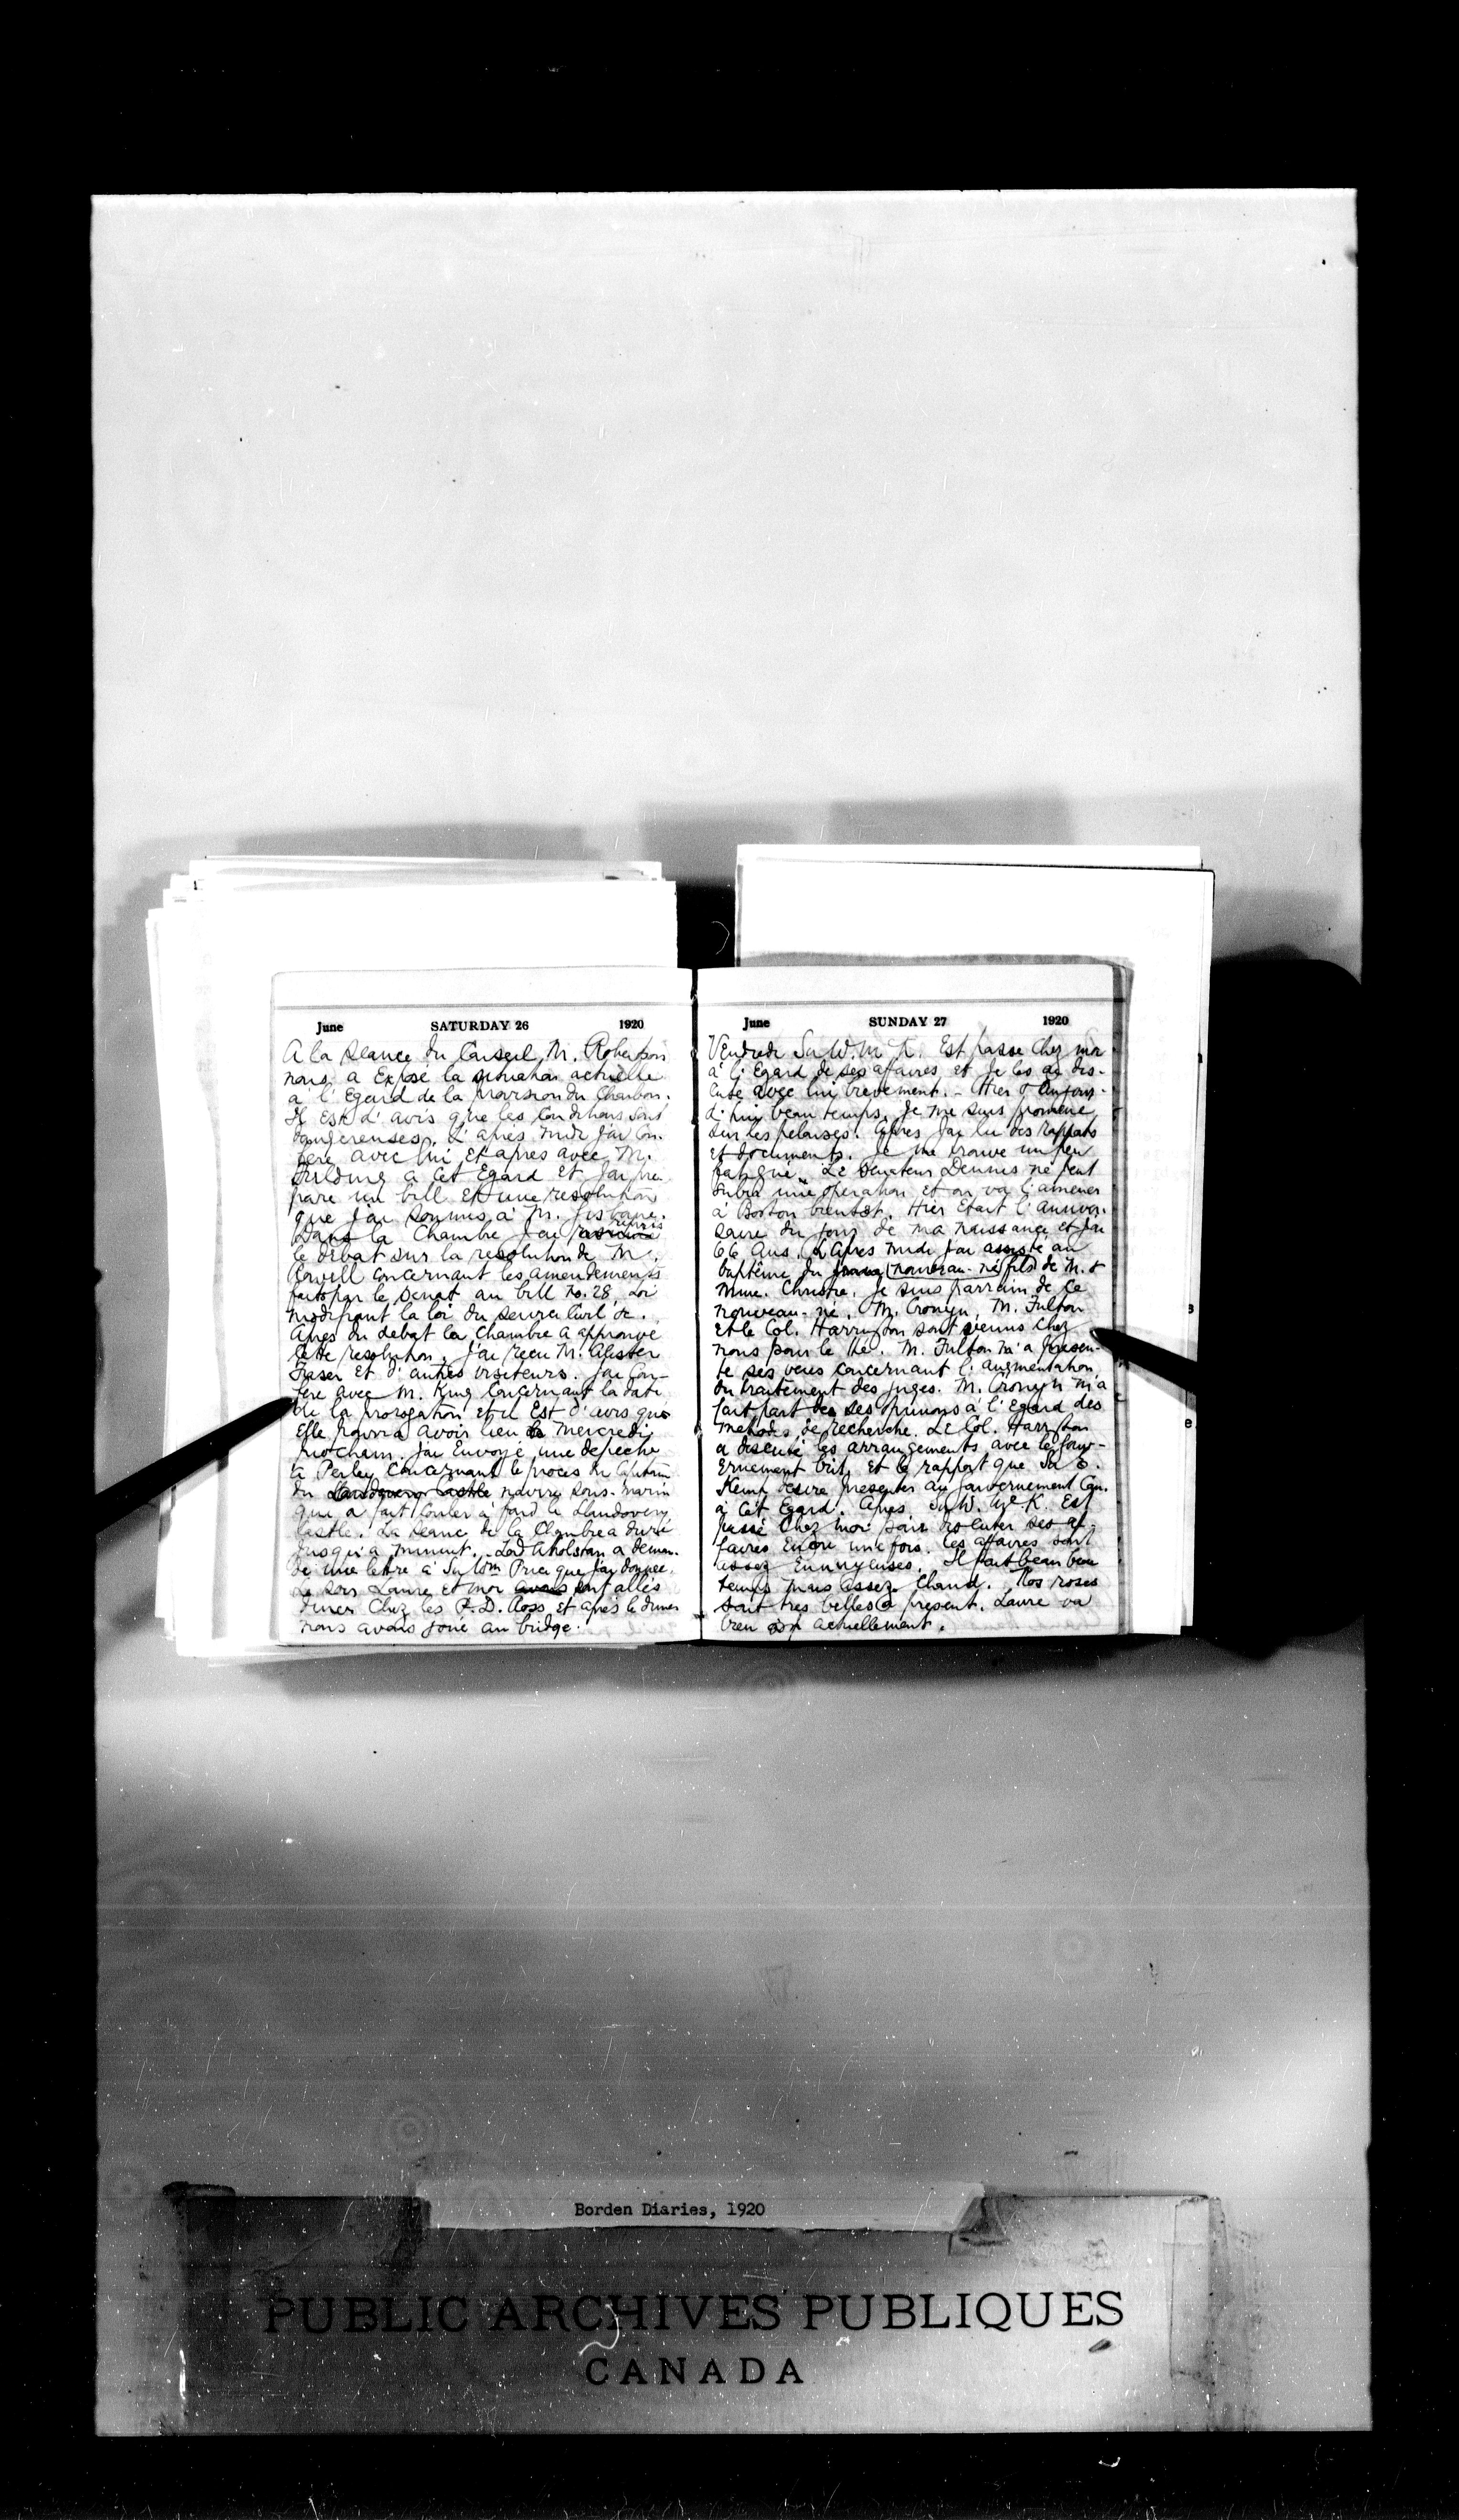 June SATURDAY 26 1920
A la séance du Conseil, M. Robertson
nous a exposé la situation actuelle
à l'égard de la provision du Charbon.
Il est d'avis que les conditions sont
dangereuses. L'après midi j'ai con-
féré avec lui et après avec M.
à cet égard et j'ai pré-
paré un bill et une resolution
que j'ai soumis à M. Gisborne.
Dans la Chambre j'ai repris
le débat sur la resolution de M.
Rowell concernant les amendements
faits par le Senat au bill No. 28, Loi
modifiant la loi du service civil &c.
Après du debat la Chambre a approuvé
cette resolution. J'ai reçu M. Alister
Fraser et d'autres visiteurs. J'ai con-
féré avec M. King concernant la date
de la prorogation et il est d'avis que
elle pourra avoir lieu Mercredi
prochain. J'ai envoyé une depeche
à Perley concernant le procès du Capitaine
du Llandovery Castle navire sous-marin
qui a fait couler à fond le Llandovery
Castle. La séance de la Chambre a duré
jusqu'à minuit. Lord Atholstan a deman-
dé une lettre à Sir Wm Price que j'ai donnée.
Le soir Laure et moi avons sont allés
diner chez les P.D. Ross et après le diner
nous avons joué au bridge.
June SUNDAY 27 1920
Vendredi Sir W. M K. est passé chez moi
à l'égard de ses affaires et je les ai dis-
cuté avec lui brèvement. - Hier & aujour-
d'hui beau temps. Je me suis promené
sur les pelouses. Après j'ai lu des rapports
et documents. Je me trouve un peu
fatigué. Le Senateur Dennis ne peut
subir une operation et on va l'amener
à Boston bientôt. Hier était l'anniver-
saire du jour de ma naissance et j'ai
66 ans. L'Après midi j'ai assisté au
baptême du nouveau-né fils de M. &
Mme. Christie. Je suis parrain de ce
nouveau-né. M. Cronyn, M. Fulton
et le Col. Harrington sont venus chez
nous pour le thé. M. Fulton m'a présen-
té ses vues concernant l'augmentation
du traitement des juges. M. Cronyn m'a
fait part de ses opinions à l'égard des
méthodes de recherche. Le Col. Harrington
a discuté les arrangements avec le gouv-
ernement brit. et le rapport que Sir E.
Kemp désire presenter au gouvernement Can.
à cet égard. Après Sir W. McK. est
passé chez moi pour discuter ses af-
faires encore une fois. Ces affaires sont
assez ennuyeuses. Il fait beau
temps mais assez chaud. Nos roses
sont très belles à présent. Laure va
bien actuellement.
Borden Diaries, 1920
PUBLIC ARCHIVES PUBLIQUES
CANADA